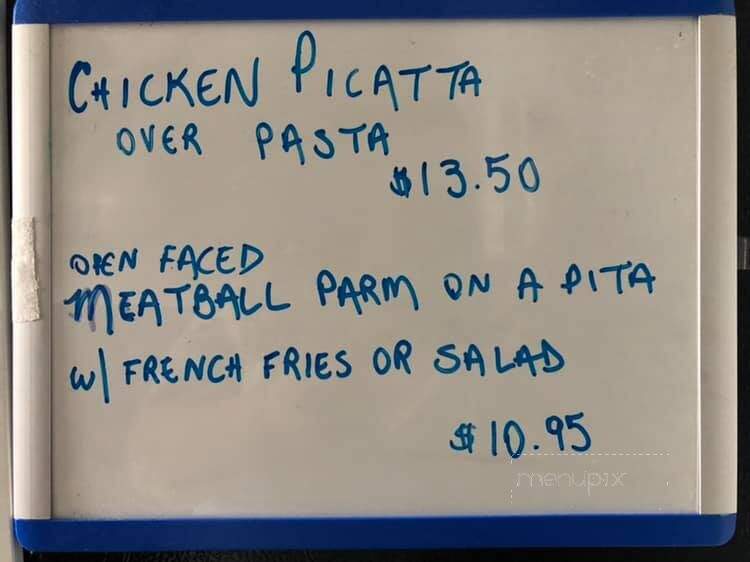 CHICKEN PICATTA
OVER PASTA
$13.50
OPEN FACED
MEATBALL PARM ON A PITA
w/ FRENCH FRIES OR SALAD
$10.95
menupix